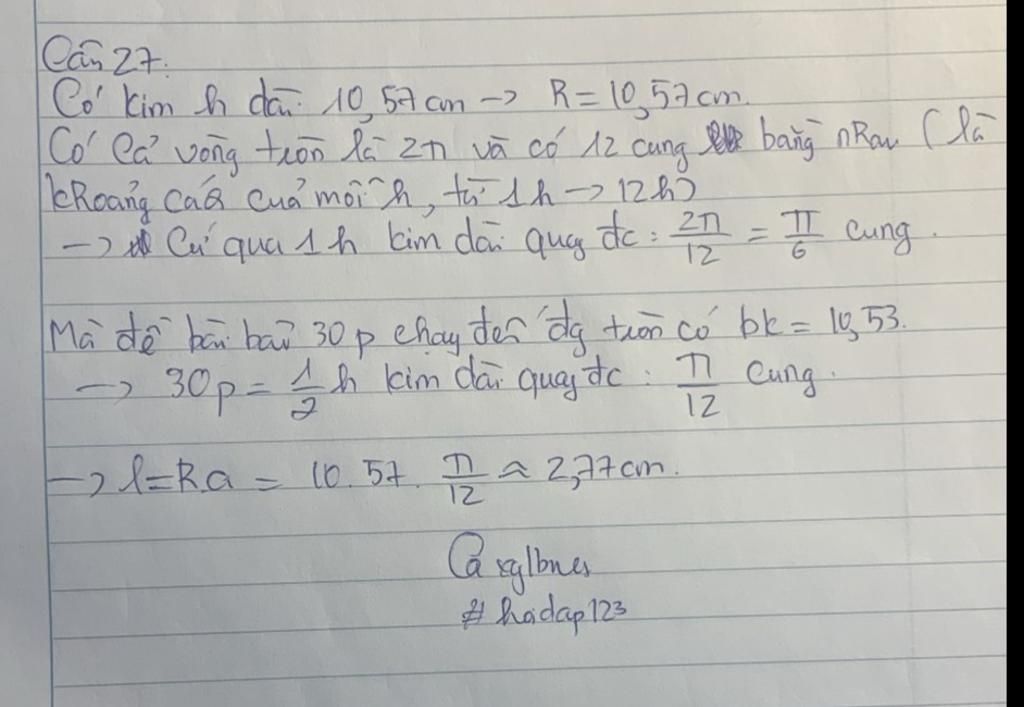 Câu 27:
Có kim h dài 10,57cm → R = 10,57cm.
Có cả vòng tròn là 2π và có 12 cung bằng nhau (là
khoảng cách của mỗi h, từ 1h → 12h)
→ Cứ qua 1h kim dài quay đc: 2π/12 = π/6 cung.
Mà đề bài bảo 30p chạy đến đg tròn có bk = 10,53.
→ 30p = 1/2 h kim dài quay đc: π/12 cung.
→ l = R.a = 10.57. π/12 ≈ 2,77cm.
#hoidap123